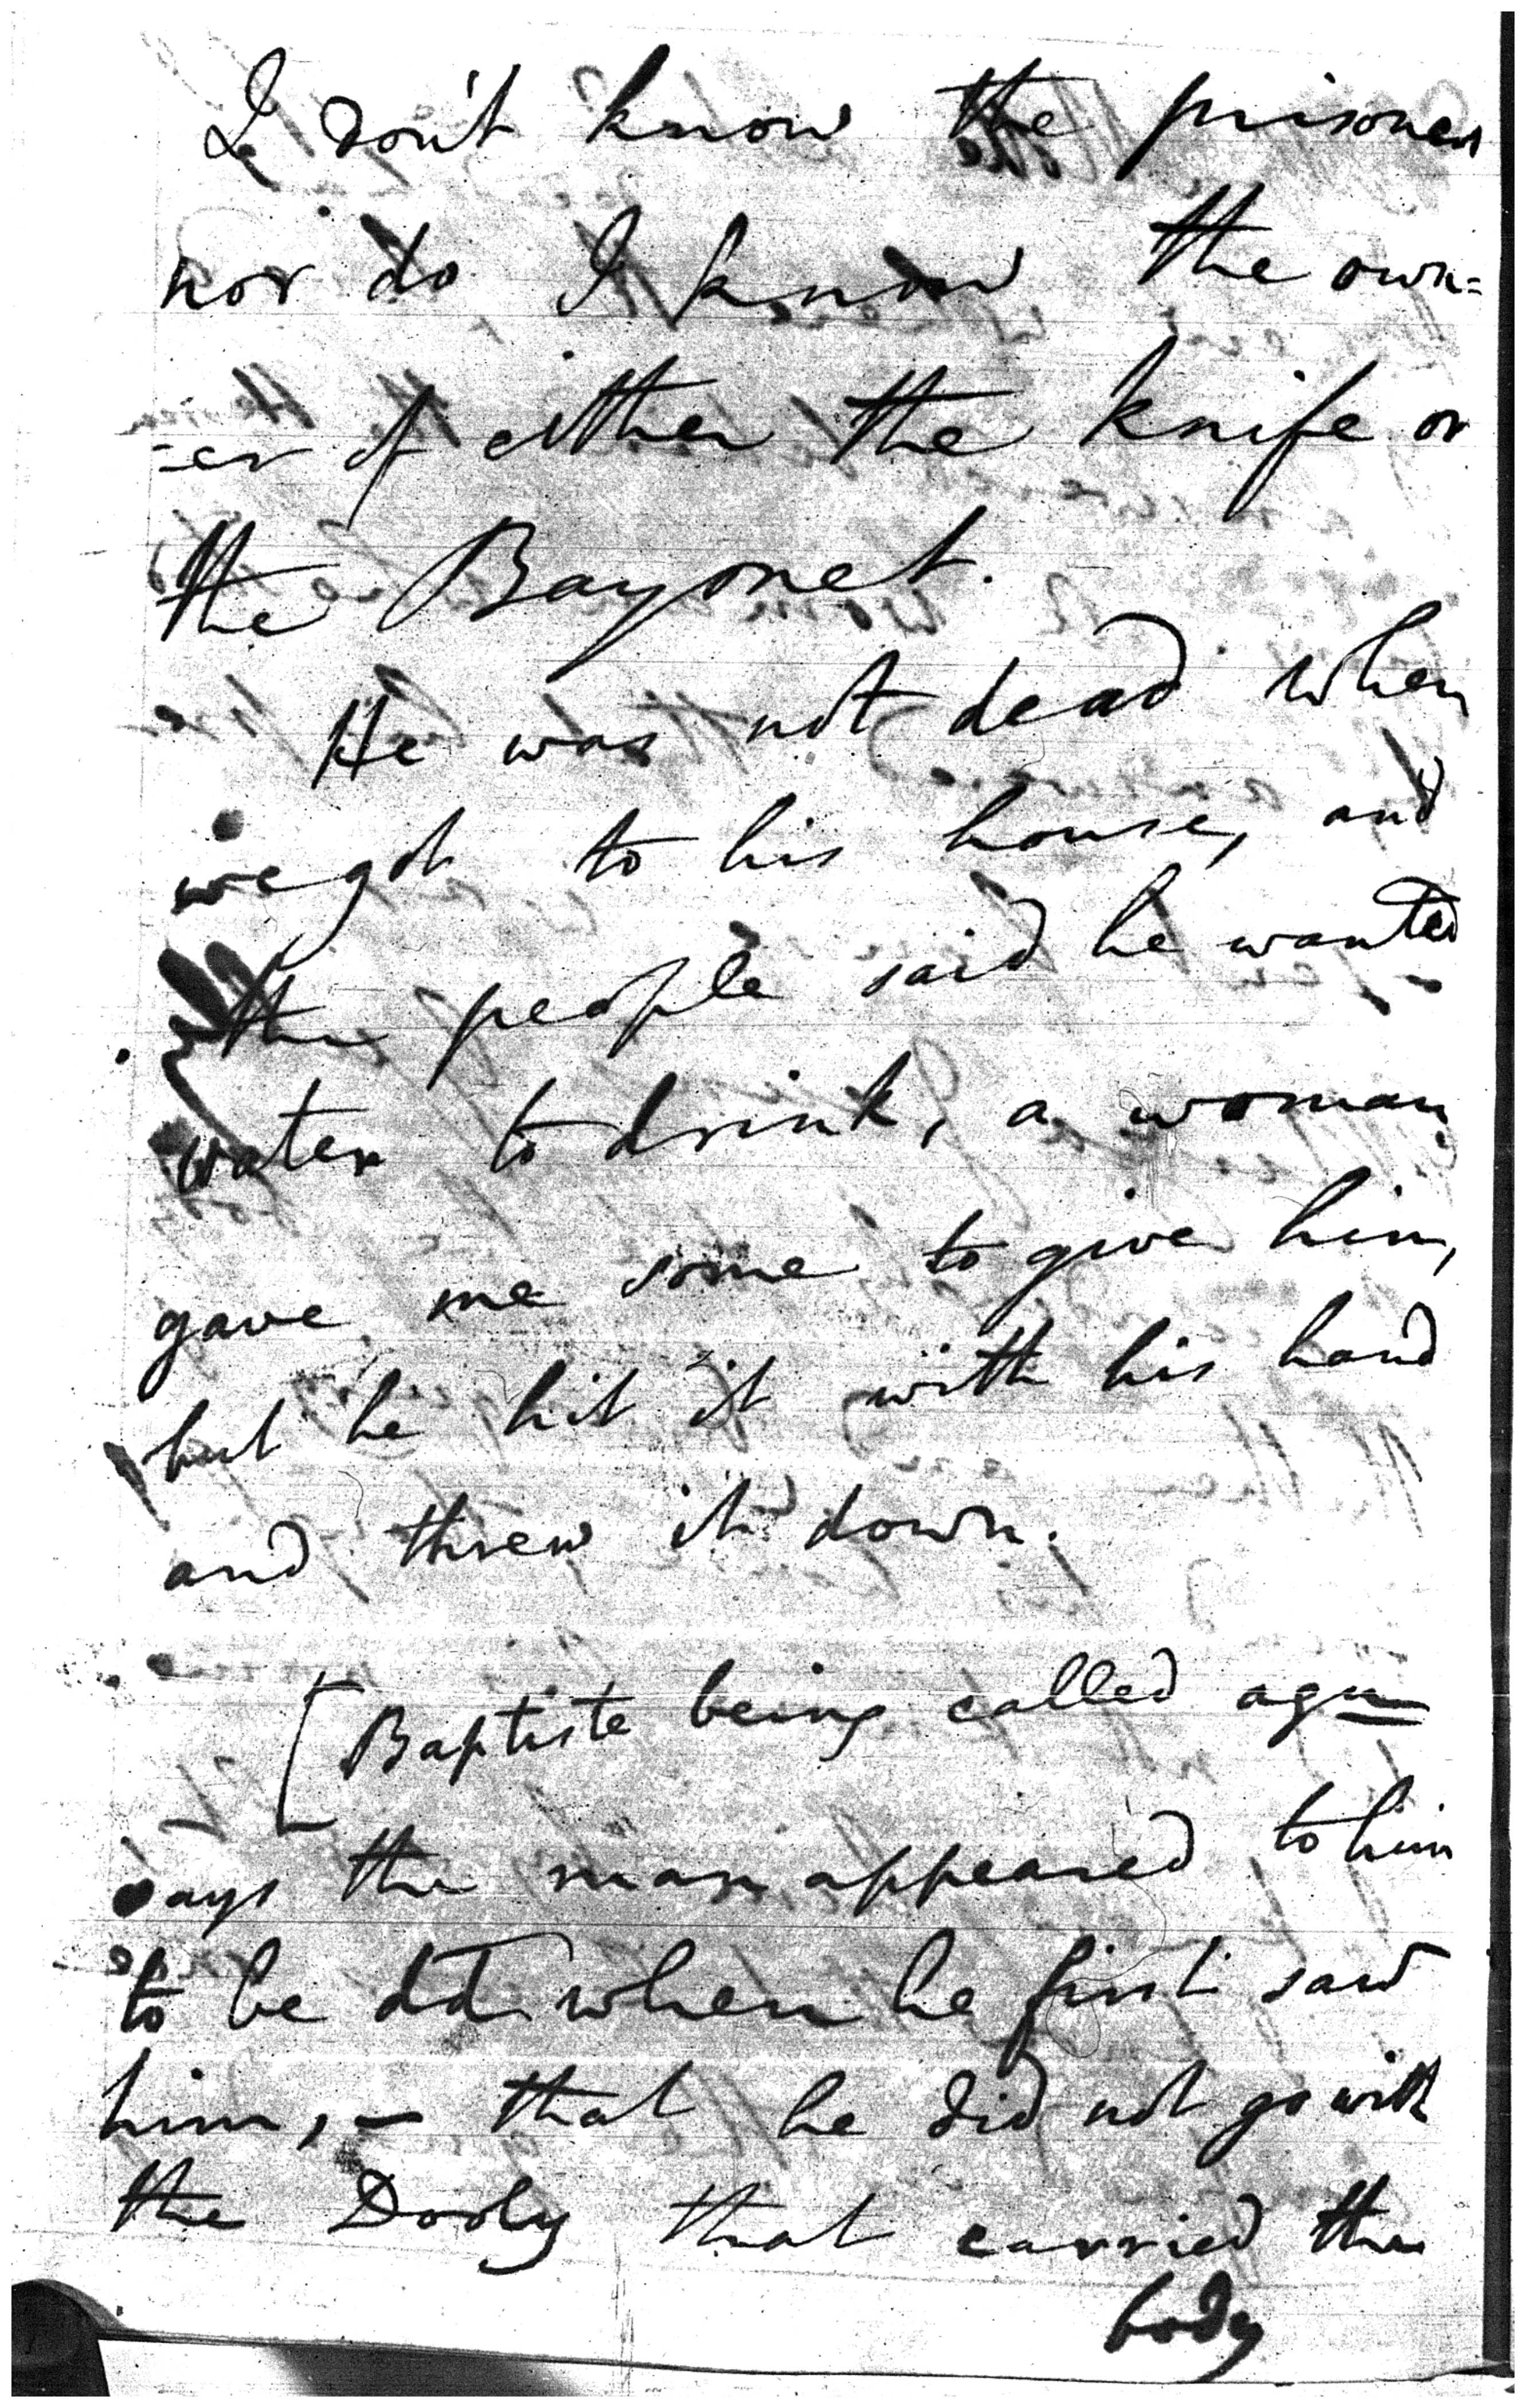 I don't know the prisoner
nor do I know the own=
-er of either the knife or
the Bayonet.
He was not dead when
we got to his house, and
the people said he wanted
water to drink, a woman
gave me some to give him,
but he hit it with his hand
and threw it down.
[Baptiste being called agn
says the man appeared to him
to be dd when he first saw
him, - that he did not go with
the Dooly that carried the
body